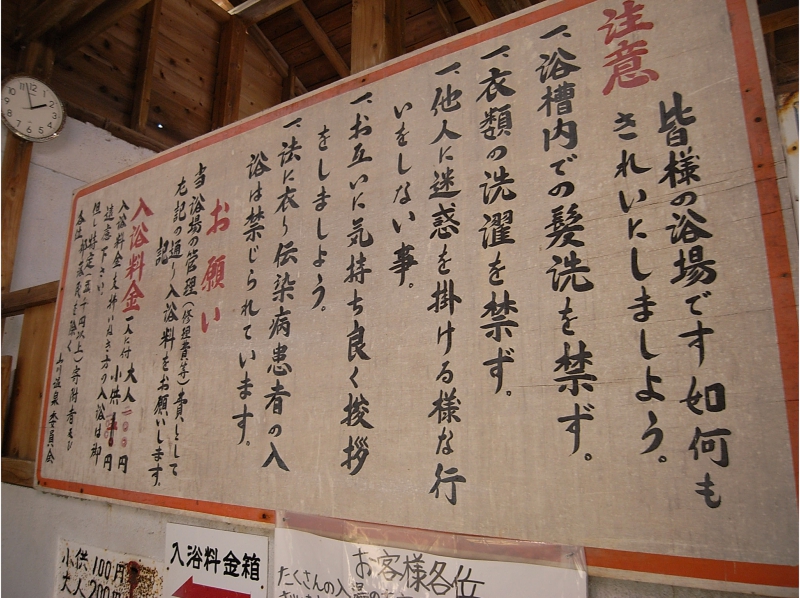 注意
皆様の浴場です如何も
きれいにしましよう。
一、浴槽内での髪洗を禁ず。
一、衣類の洗濯を禁ず。
一、他人に迷惑を掛ける様な行
いをしない事。
一、お互いに気持ち良く挨拶
をしましょう。
一、法に衣り伝染病患者の入
浴は禁じられています。
お願い
当浴場の管理(修理費等)費として
右記の通り入浴料をお願いします。
記
入浴料金 一人に付 大人二〇〇円
小供一〇〇円
入浴料金支拂いなき方の入浴は御
遠慮下さい。
但し特定(五千円以上)寄附者及び
部落民を除く
温泉委員会
小供100円
大人200円
入浴料金箱
お客様各位
たくさんの入湯の